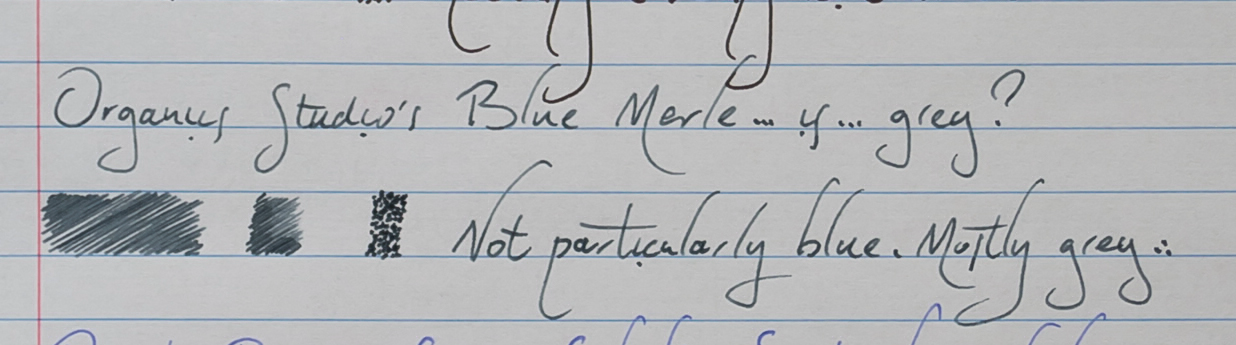 Organics Studio's Blue Merle... is... grey?
Not particularly blue. Mostly grey :.